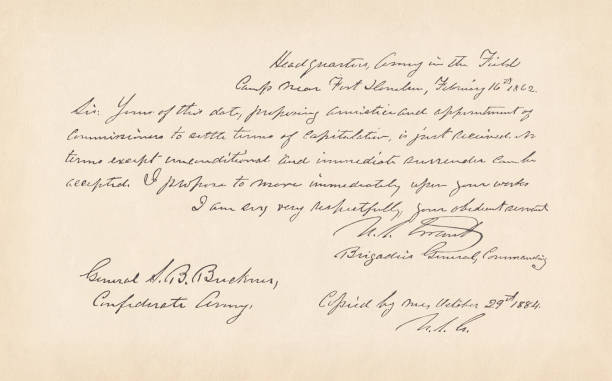 Headquarters, Army in the Field
Camp near Fort Donelson, February 16th 1862
Sir: Yours of this date, proposing armistice and appointment of
Commissioners to settle terms of Capitulation, is just received. No
terms except unconditional and immediate surrender can be
accepted. I propose to move immediately upon your works
I am sir, very respectfully, your obedient servant
U. S. Grant
Brigadier General, Commanding
General S. B. Buckner,
Confederate Army,
Copied by me, October 29th 1884.
U. S. G.